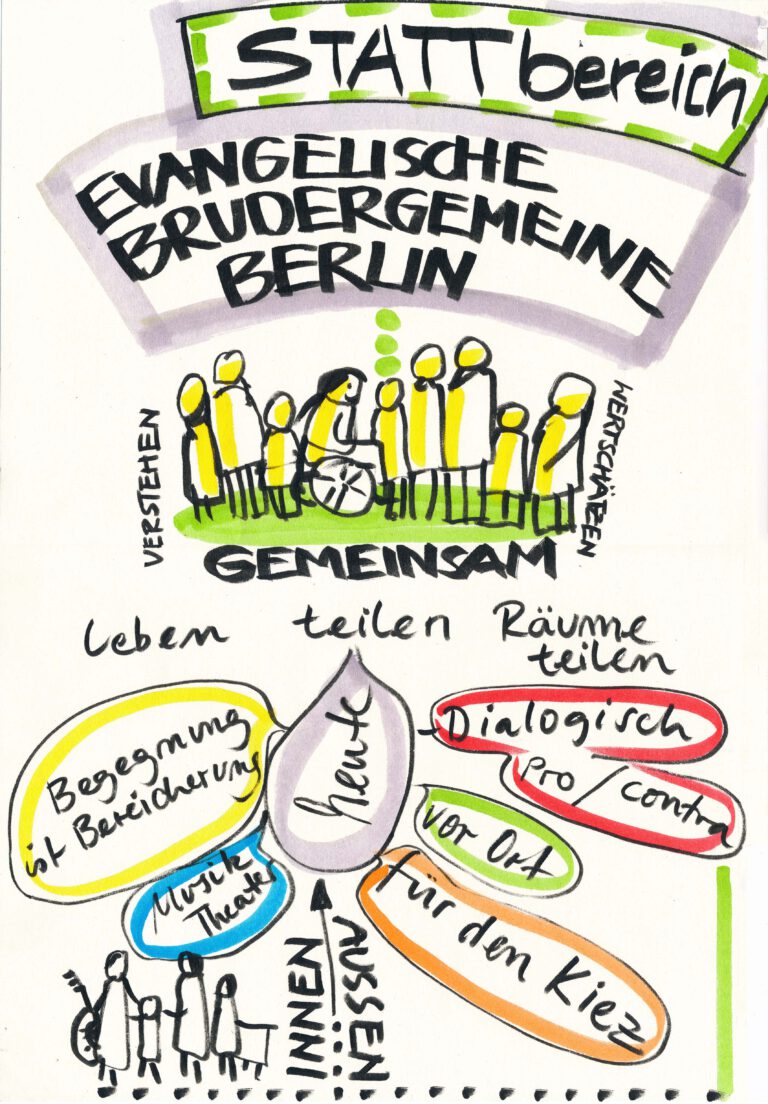 STATTbereich
EVANGELISCHE
BRUDERGEMEINE
BERLIN
VERSTEHEN
WERTSCHÄTZEN
GEMEINSAM
Leben teilen Räume
teilen
heute
Begegnung
ist Bereicherung
Musik
Theater
Dialogisch
Pro/contra
vor Ort
für den Kiez
INNEN
AUSSEN